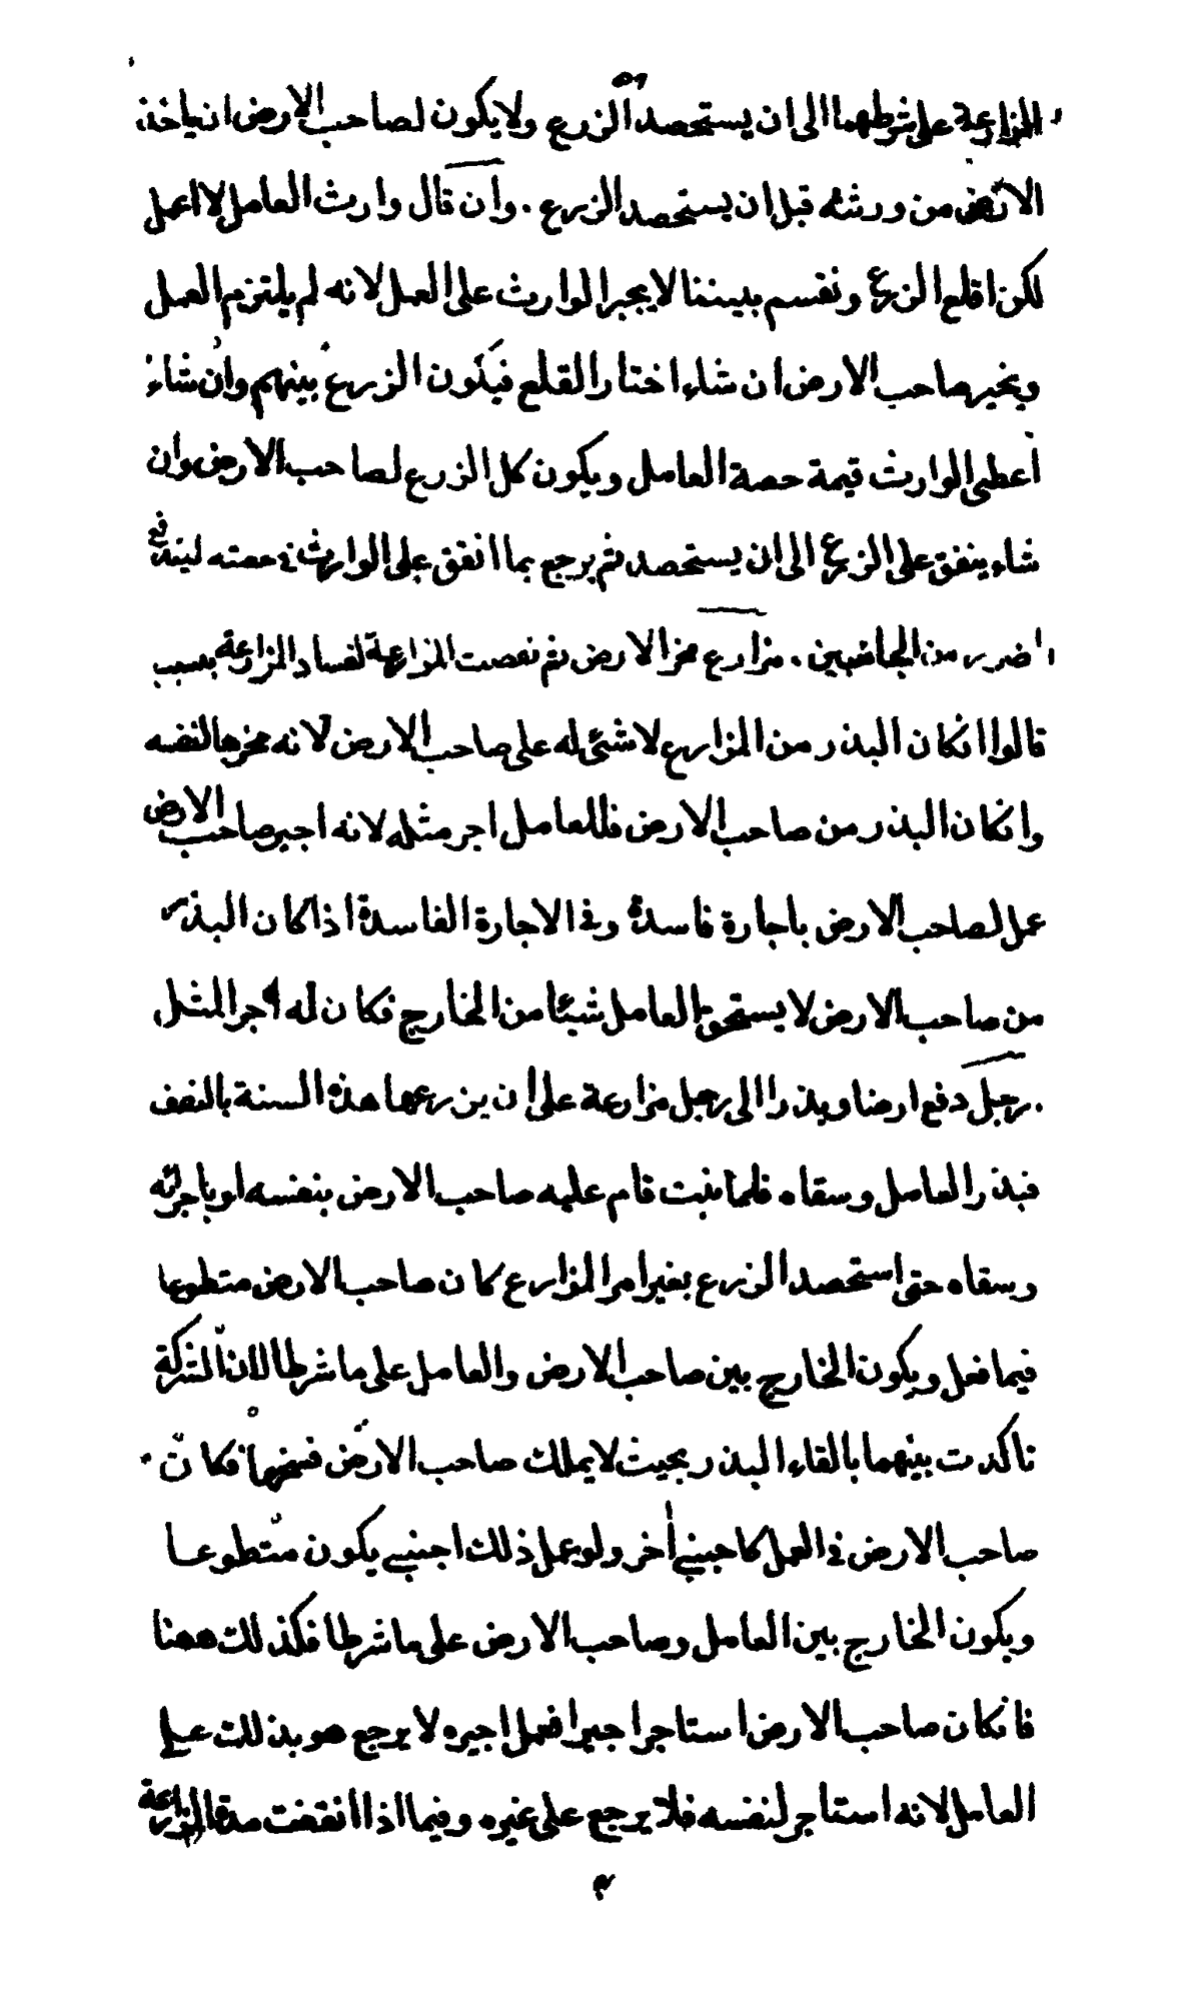 ٥٩
المزارعة على شرطهما الى ان يستحصد الزرع ولا يكون لصاحب الارض ان ياخذ
الارض من ورثته قبل ان يستحصد الزرع . وان قال وارث العامل لا اعمل
لكن اقلع الزرع ونقسم بيننا لا يجبر الوارث على العمل لانه لم يلتزم العمل
ويخير صاحب الارض ان شاء اختار القلع فيكون الزرع بينهم وان شاء
اعطى الوارث قيمة حصة العامل ويكون كل الزرع لصاحب الارض وان
شاء ينفق على الزرع الى ان يستحصد ثم يرجع بما انفق على الوارث في حصته ليندفع
الضرر من الجانبين . مزارع الارض ثم المزارعة لفساد المزارعة بسبب
قالوا انكان البذر من المزارع لا شئ له على صاحب الارض لانه لنفسه
وانكان البذر من صاحب الارض فللعامل اجر مثله لانه اجير صاحب الارض
عمل لصاحب الارض باجارة فاسدة وفي الاجارة الفاسدة اذا كان البذر
من صاحب الارض لا يستحق العامل شيئا من الخارج فكان له اجر المثل
. رجل دفع ارضا وبذرا الى رجل مزارعة على ان يزرعها هذه السنة بالنصف
فبذر العامل وسقاه فلما نبت قام عليه صاحب الارض بنفسه او باجرائه
وسقاه حتى استحصد الزرع بغير امر المزارع كان صاحب الارض متطوعا
فيما فعل ويكون الخارج بين صاحب الارض والعامل على ما شرطا لان الشركة
تاكدت بينهما بالقاء البذر بحيث لا يملك صاحب الارض فسخها فكان
صاحب الارض في العمل كاجنبي أخر ولو عمل ذلك اجنبي يكون متطوعا
ويكون الخارج بين العامل وصاحب الارض على ما شرطا فكذلك ههنا
فانكان صاحب الارض استاجر اجيرا فعمل اجيره لا يرجع هو بذلك على
العامل لانه استاجر لنفسه فلا يرجع على غيره وفيما اذا انقضت مدة المزارعة